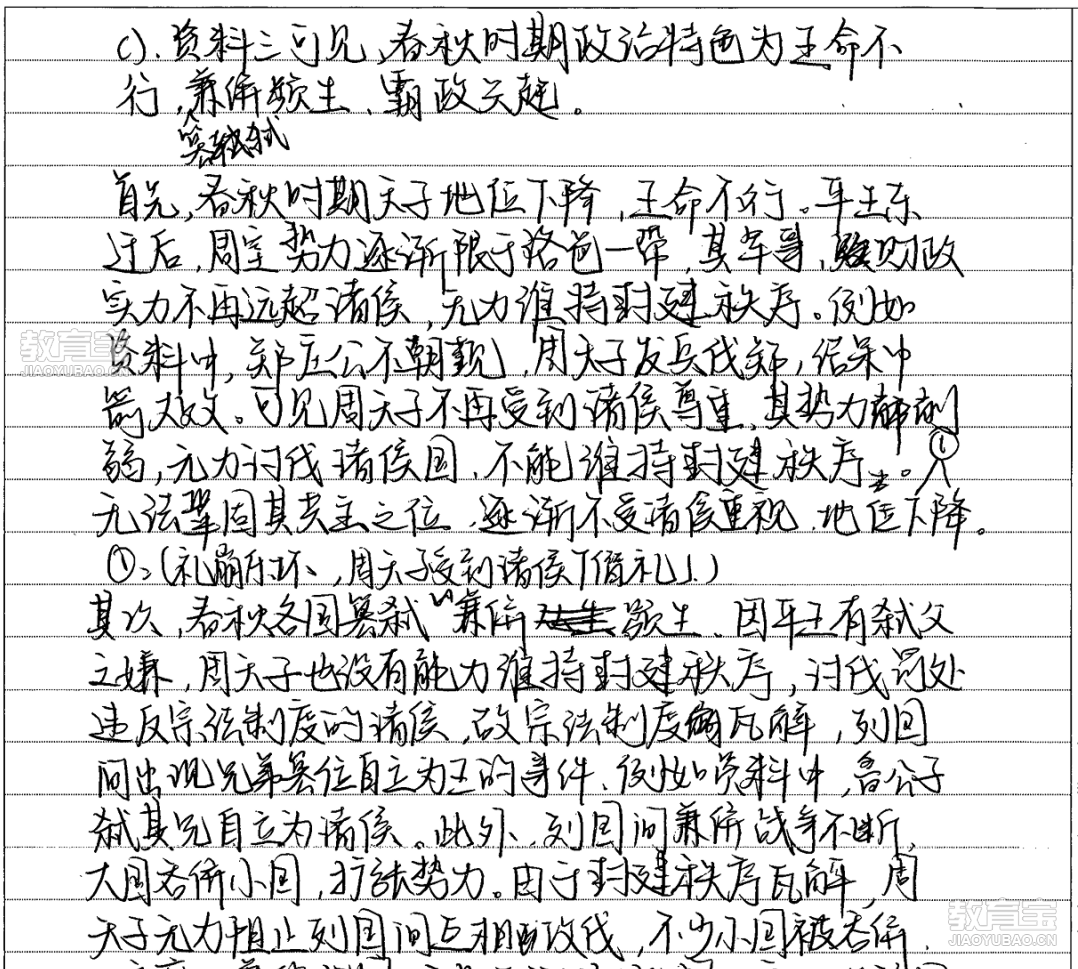 c). 资料三可见，春秋时期政治特色为王命不
行，兼併频生、霸政兴起。
篡弑
首先，春秋时期天子地位下降，王命不行。平王东
迁后，周室势力逐渐限于洛邑一带，其军事，财政
实力不再远超诸侯，无力维持封建秩序。例如
资料中，郑庄公不朝觐，周天子发兵伐郑，结果中
箭大败。可见周天子不再受到诸侯尊重，其势力削
弱，无力讨伐诸侯国，不能维持封建秩序。①
无法巩固其共主之位，逐渐不受诸侯重视，地位下降。
①：(礼崩乐坏，周天子受到诸侯「僭礼」.)
其次，春秋各国篡弑兼併频生，因平王有弑父
之嫌，周天子也没有能力维持封建秩序，讨伐罚处
违反宗法制度的诸侯，故宗法制度瓦解，列国
间出现兄弟篡位自立为王的事件，例如资料中，公子
弑其兄自立为诸侯。此外，列国间兼併战争不断，
大国吞併小国，扩张势力。由于封建秩序瓦解，周
天子无力阻止列国间互相攻伐，不少小国被吞併，
教育宝
JIAOYUBAO.CN
教育宝
JIAOYUBAO.CN